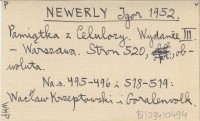 P NEWERLY Igor 1952.
Pamiątka z Celulozy. Wydanie III
- Warszawa. Stron 520, ob-
woluta.
Na s. 495-496 i 518-519:
Wacław Krzeptowski i Goralenvolk.